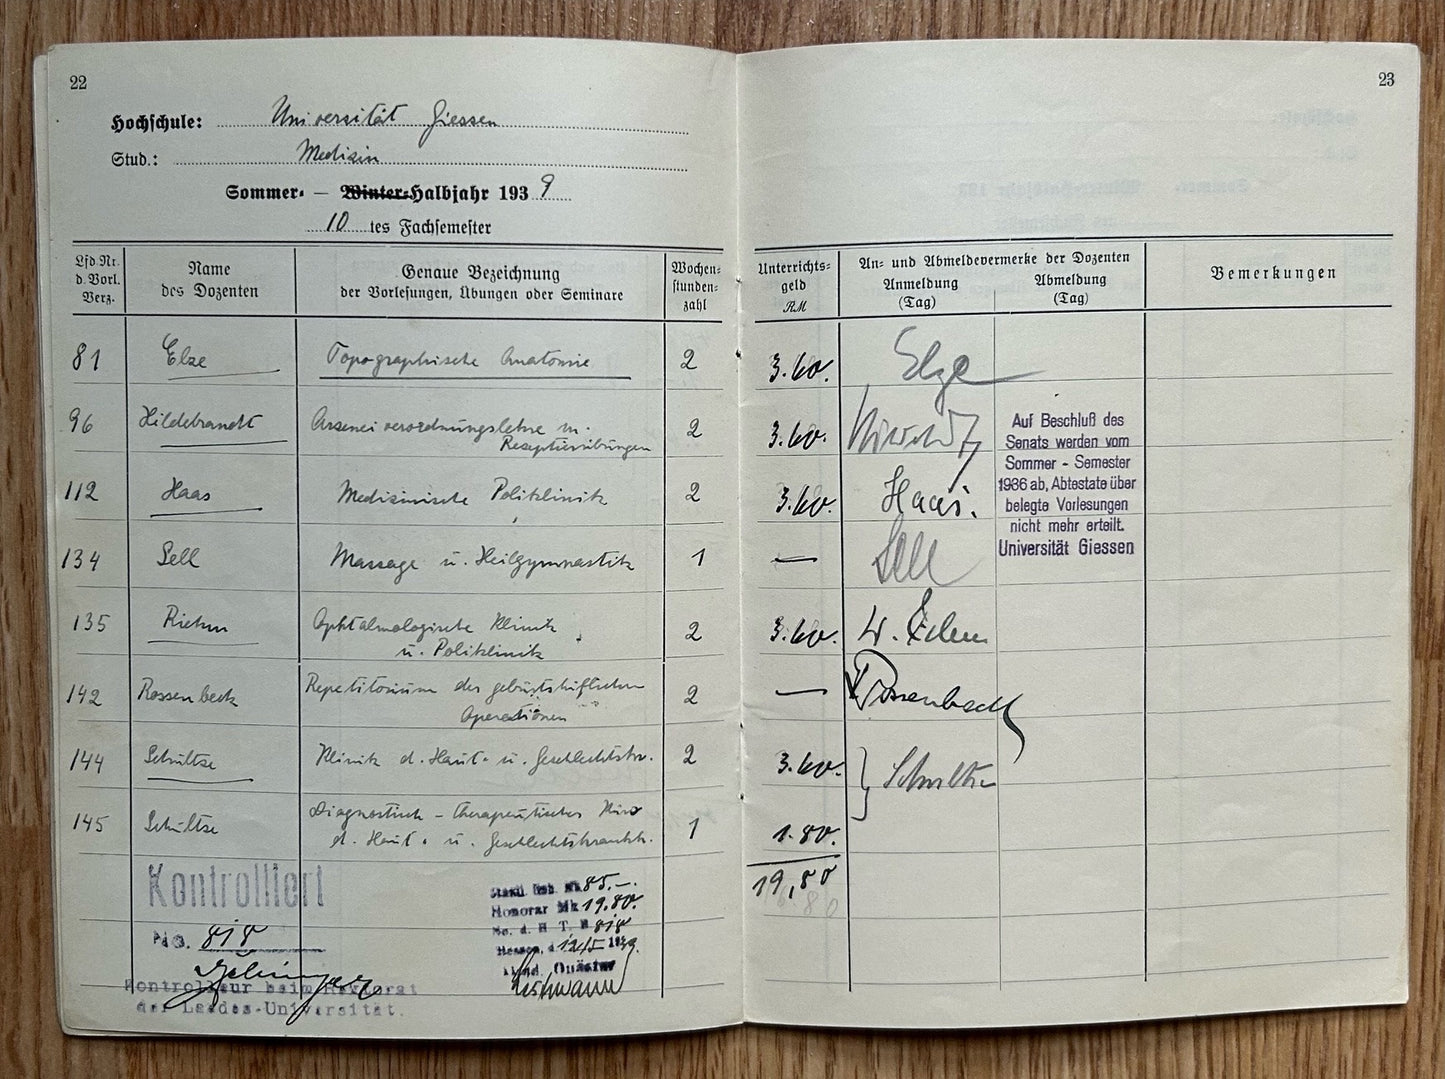 22
Hochschule: Universität Giessen
Stud.: Medizin
Sommer- — Winter-Halbjahr 1939
10 tes Fachsemester
Lfd. Nr. d. Vorl. Verz.
Name des Dozenten
Genaue Bezeichnung der Vorlesungen, Übungen oder Seminare
Wochen-stunden-zahl
81 Elze Topographische Anatomie 2
96 Hildebrandt Arzneiverordnungslehre m. 2
Rezeptierübungen
112 Haas Medizinische Poliklinik 2
134 Sell Massage u. Heilgymnastik 1
135 Riehm Ophtalmologische Klinik 2
u. Poliklinik
142 Rossenbeck Repetitorium der geburtshilflichen 2
Operationen
144 Schultze Klinik d. Haut- u. Geschlechtskr. 2
145 Schultze Diagnostisch-therapeutischer 1
d. Haut- u. Geschlechtskrankh.
Kontrolliert
No. 818
Kontrolleur beim Rektorat
der Landes-Universität.
85.—.
Honorar Mk 19.80.
818
Giessen, d. 12/5 1939
Quästor
23
Unterrichts-geld RM
An- und Abmeldevermerke der Dozenten
Anmeldung (Tag)
Abmeldung (Tag)
Bemerkungen
3.60. Elze
3.60.
3.60. Haas.
— Sell
3.60.
— Rossenbeck
3.60. Schultze
1.80.
19,80
Auf Beschluß des
Senats werden vom
Sommer - Semester
1936 ab, Abtestate über
belegte Vorlesungen
nicht mehr erteilt.
Universität Giessen